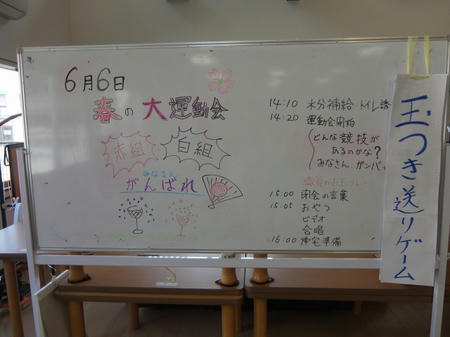 6月6日
春の大運動会
赤組
白組
みなさん
がんばれ
14:10 水分補給・トイレ
14:20 運動会開始
どんな競技が
あるのかな?
みなさん ガンバ
15:00 閉会の言葉
15:05 おやつ
ビデオ
合唱
16:00 帰宅準備
玉つき送りゲーム